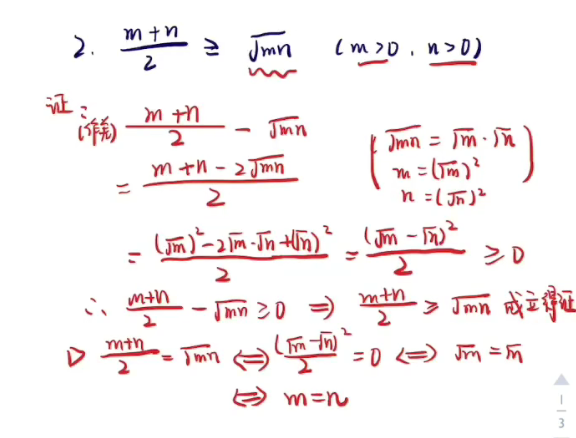 2. (m+n)/2 ≥ √mn (m>0, n>0)
证: (作差) (m+n)/2 - √mn
= (m+n-2√mn)/2
(√mn = √m·√n
m = (√m)²
n = (√n)²)
= ((√m)²-2√m·√n+(√n)²)/2 = (√m-√n)²/2 ≥ 0
∴ (m+n)/2 - √mn ≥ 0 ⇒ (m+n)/2 ≥ √mn 成立得证
▷ (m+n)/2 = √mn ⇔ (√m-√n)²/2 = 0 ⇔ √m = √n
⇔ m=n
1
3